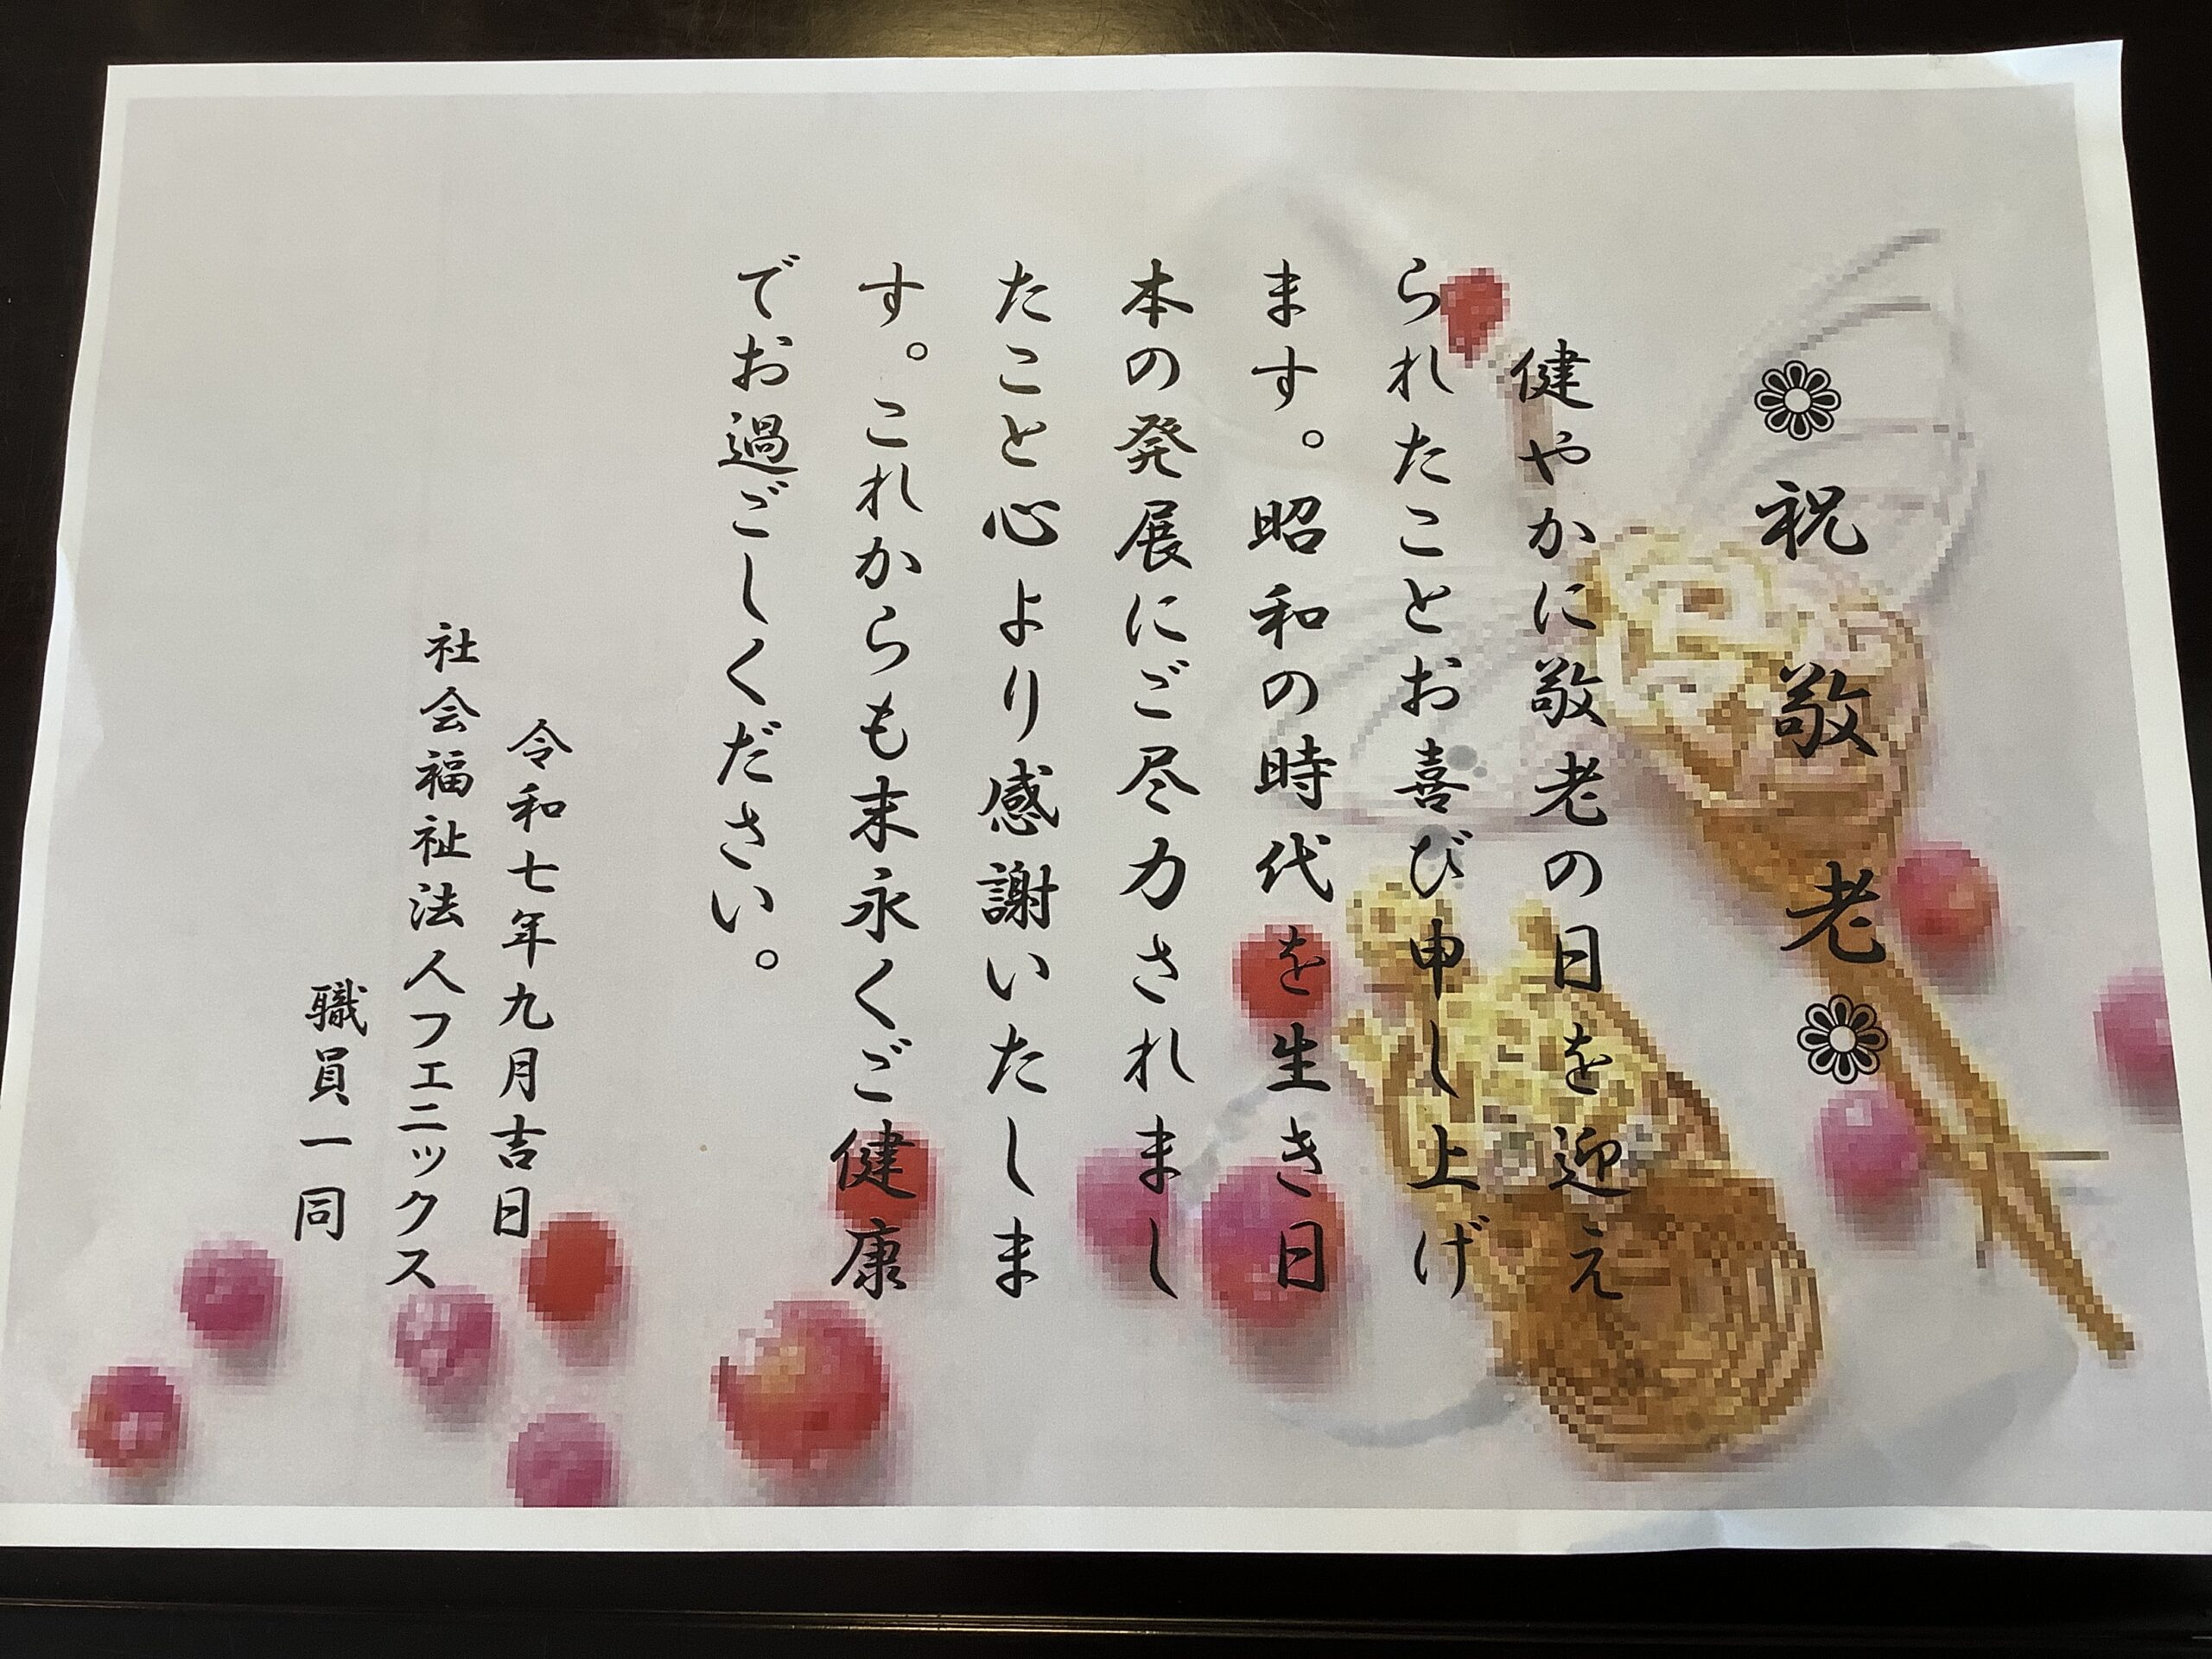 ❁祝 敬 老❁
健やかに敬老の日を迎え
られたことお喜び申し上げ
ます。昭和の時代を生き日
本の発展にご尽力されまし
たこと心より感謝いたしま
す。これからも末永くご健康
でお過ごしください。
令和七年九月吉日
社会福祉法人フェニックス
職員一同